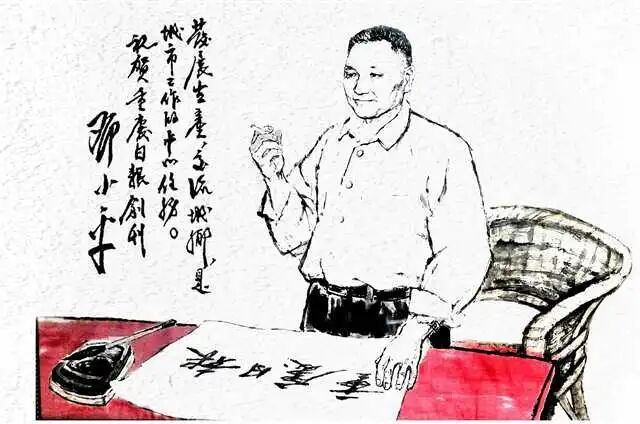 發展生產,交流城鄉,是
城市工作的中心任務。
祝賀重慶日報創刊
鄧小平
重慶日報